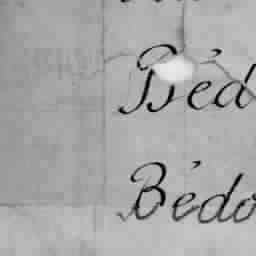 Béd
Bédo